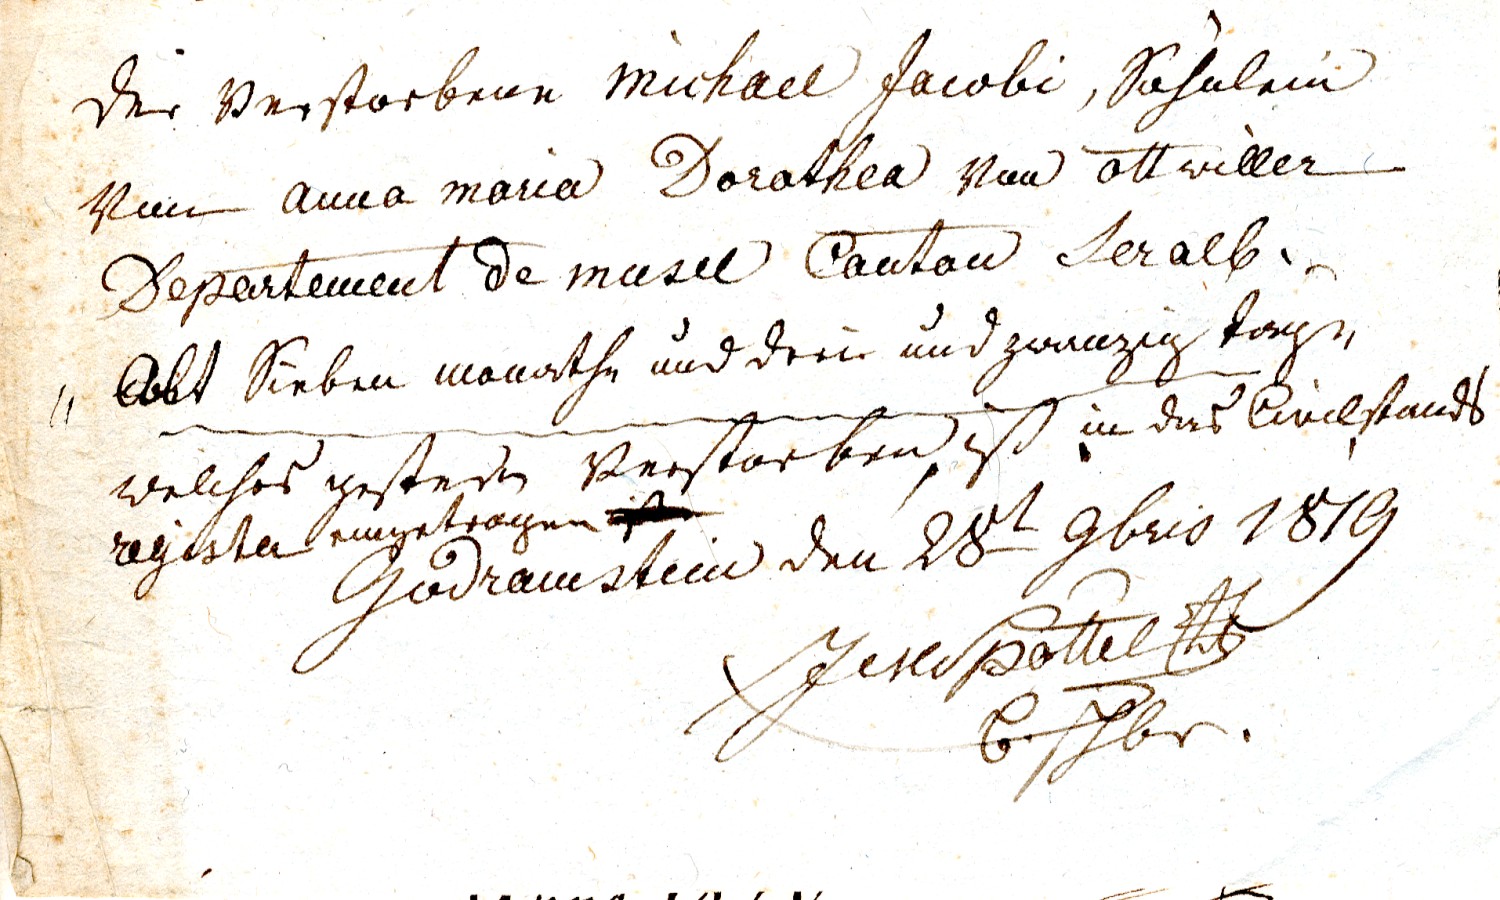 Der Verstorbene Michael Jacobi, Söhnlein
Von anna maria Dorothea Von ottwiller
Departement de musel Canton Seralb.
" Alt Sieben monathe und drei und zwanzig tage,
welches gestern Verstorben, ist in das Civilstands
register eingetragen
Godramstein den 28t 9bris 1819
Pottel